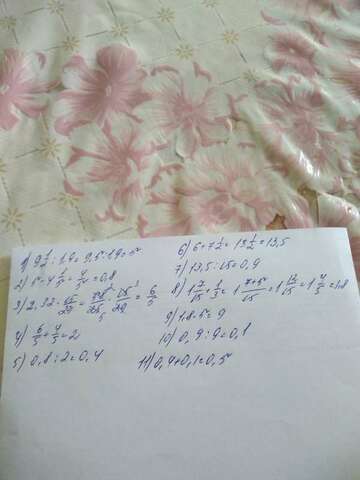 1) 9 1/2 : 1,9 = 9,5 : 1,9 = 5
2) 5 - 4 1/5 = 4/5 = 0,8
3) 2,32 ·
4) 6/5 + 4/5 = 2
5) 0,8 : 2 = 0,4
6) 6 + 7 1/2 = 13 1/2 = 13,5
7) 13,5 : 15 = 0,9
8) 1 7/15 + 1/3 = 1 7+5/15 = 1 12/15 = 1 4/5 = 1,8
9) 1,8 · 5 = 9
10) 0,9 : 9 = 0,1
11) 0,4 + 0,1 = 0,5